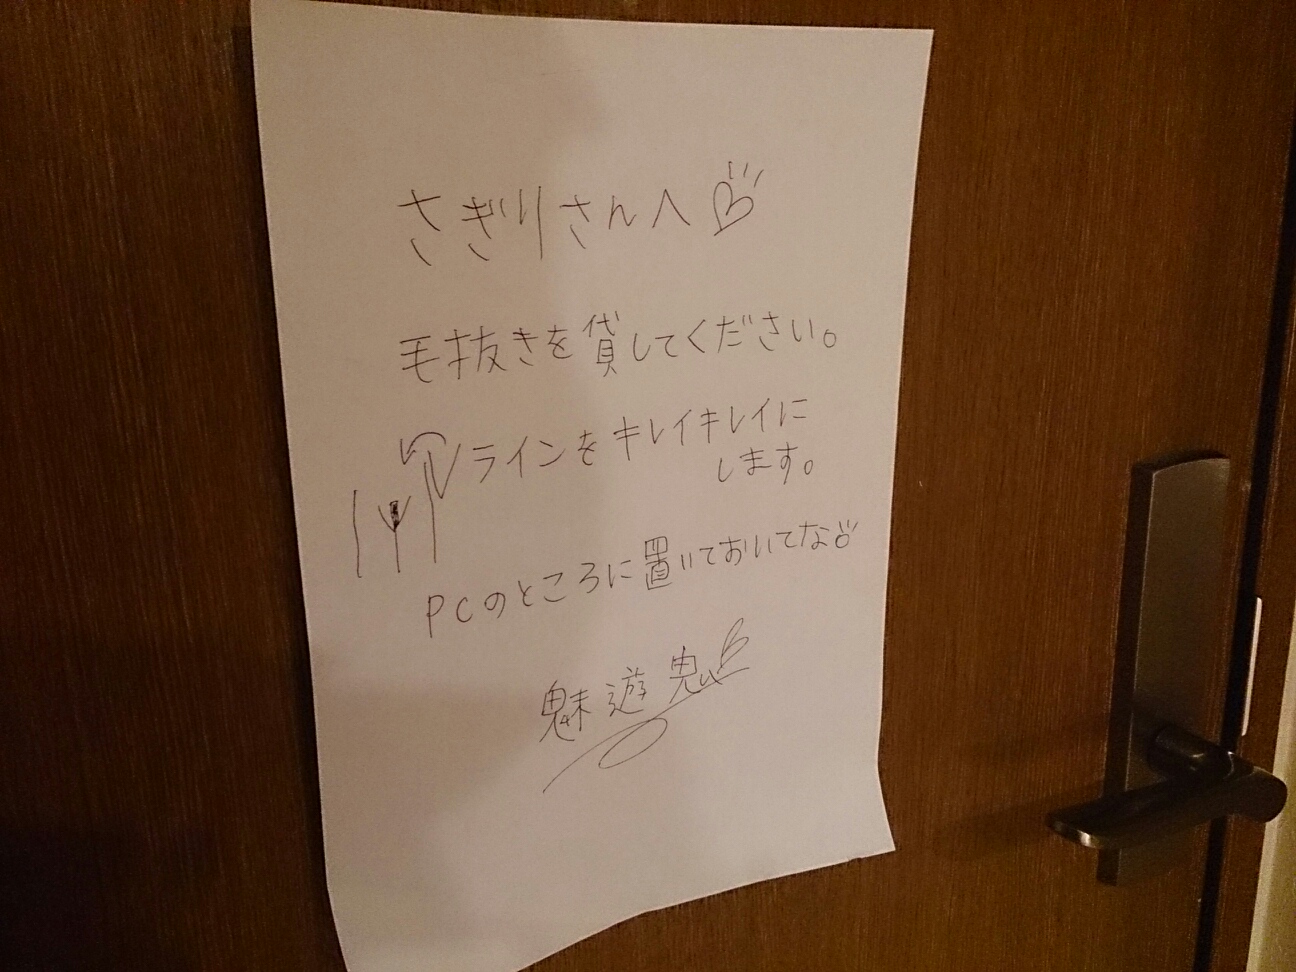 さぎりさんへ♡
毛抜きを貸してください。
Vラインをキレイキレイに
します。
PCのところに置いておいてな
魅遊鬼